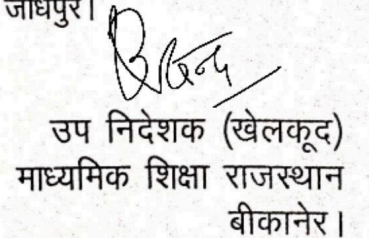 जोधपुर।
उप निदेशक (खेलकूद)
माध्यमिक शिक्षा राजस्थान
बीकानेर।